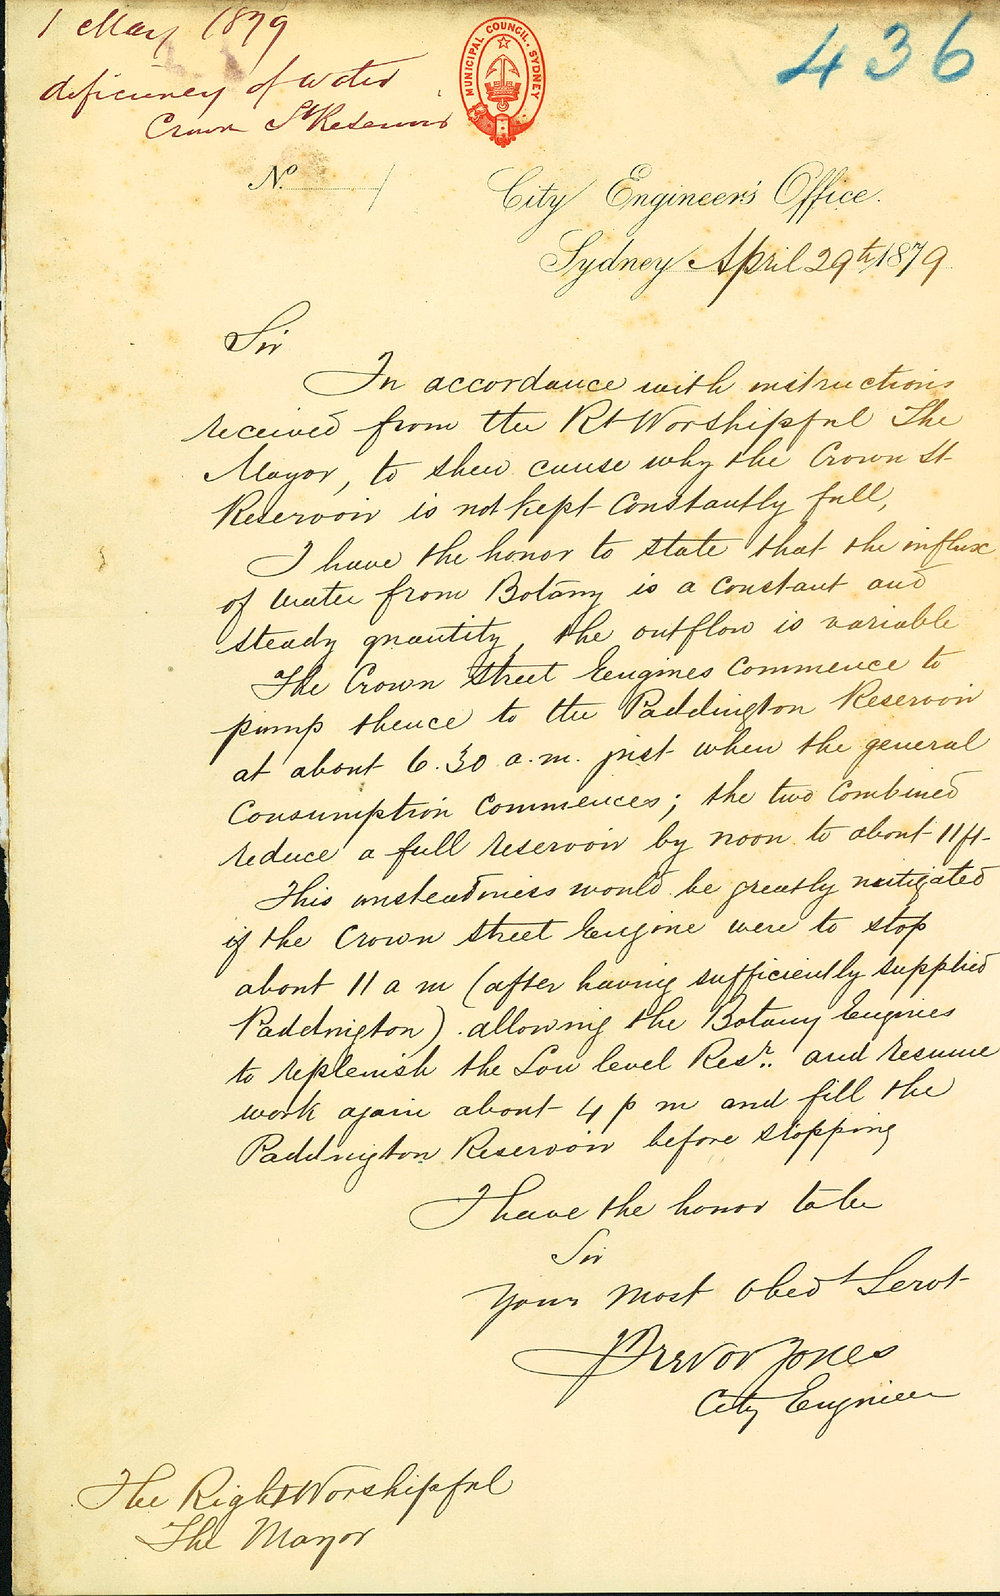 1 May 1879
deficiency of Water
Crown St Reservoir
436
MUNICIPAL COUNCIL. SYDNEY
No.
City Engineer's Office.
Sydney April 29th 1879
Sir
In accordance with instructions
received from the Rt Worshipful The
Mayor, to shew cause why the Crown St
Reservoir is not kept constantly full,
I have the honor to state that the influx
of water from Botany is a constant and
steady quantity, the outflow is variable
The Crown Street Engines commence to
pump thence to the Paddington Reservoir
at about 6.30 a.m. just when the general
Consumption commences; the two combined
reduce a full reservoir by noon to about 11 ft
This unsteadiness would be greatly mitigated
if the Crown Street Engine were to stop
about 11 a m (after having sufficiently supplied
Paddington). allowing the Botany Engines
to replenish the Low level Resr.. and resume
work again about 4 p m and fill the
Paddington Reservoir before stopping
I have the honor to be
Sir
Your most obedt Servt
Trevor Jones
City Engineer
The Right Worshipful
The Mayor